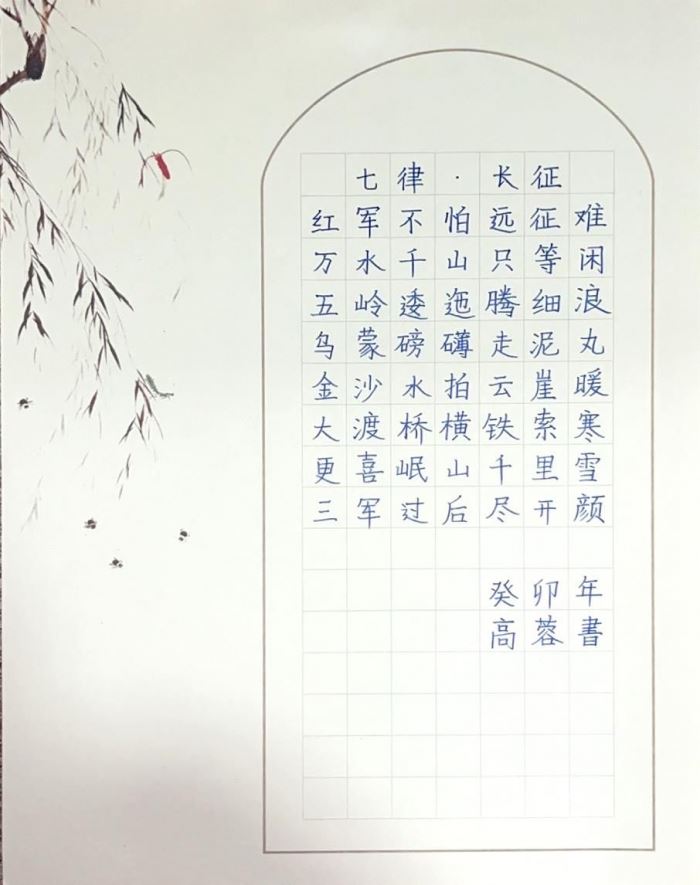 七律·长征
红军不怕远征难
万水千山只等闲
五岭逶迤腾细浪
乌蒙磅礴走泥丸
金沙水拍云崖暖
大渡桥横铁索寒
更喜岷山千里雪
三军过后尽开颜
癸卯年
高蓉書